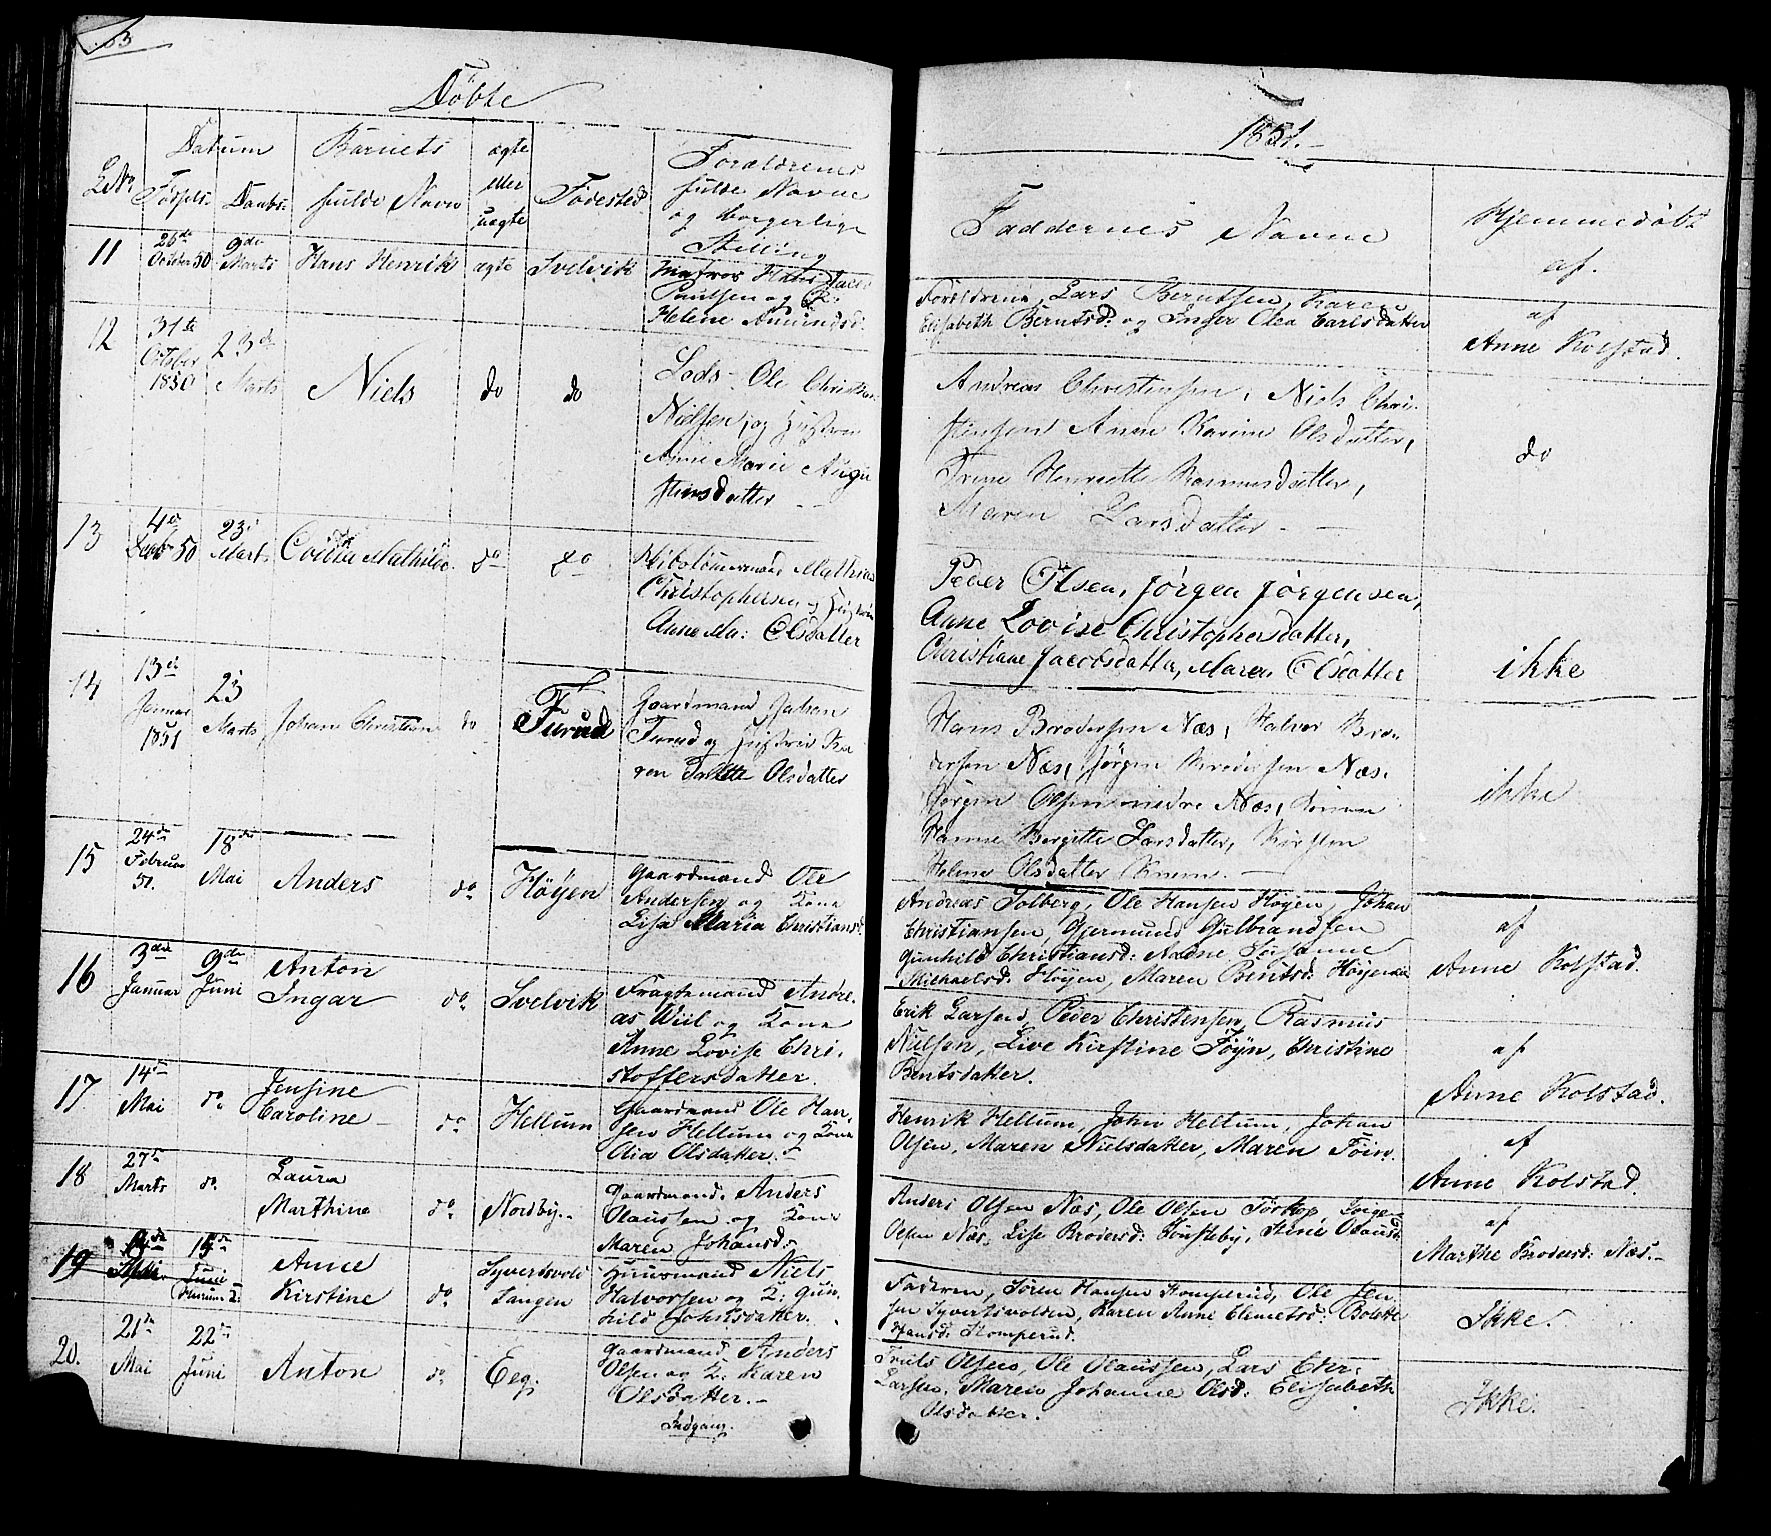 63
Döbte
1851.
L.No
Datum
Fødsels-
Daabs-
Barnets
fulde Navn
ægte
eller
uægte
Fødested
Forældrenes
fulde Navne
og borgerlige
Stilling
Faddernes Navne
Hjemmedøbt
af.
11
26de
October 50
9de
Marts
Hans Henrik
ægte
Svelvik
Matros Hans Jacob
Paulsen og K:
Helene Amundsd:
Forældrene, Lars Berntsen, Karen
Elisabeth Berntsd: og Inger Olea Carlsdatter
af
Anne Kolstad.
12
31te
October
1850
23de
Marts
Niels
do
do
Lods Ole Christian
Nielsen, og Hustru
Anne Marie Augu
stinsdatter
Andreas Christensen, Niels Chri-
stensen Anne Karine Olsdatter,
Trine Henriette Rasmusdatter,
Maren Larsdatter
do
13
4de
50
23
Marts
Mathilde
do
do
Mathias
Christophersen og Hustru
Anne Ma: Olsdatter
Peder Olsen, Jørgen Jørgensen,
Anne Lovise Christophersdatter,
Christiane Jacobsdatter, Maren Olsdatter
ikke
14
13de
Januar
1851
23
Marts
Johan Christian
do
Furud
Gaardmand Johan
Furud og Hustru Ka
ren Olsdatter
Hans Brodersen Næs, Halvor Bro-
dersen Næs, Jørgen Brodersen Næs,
Jørgen Olsen nedre Næs,
Hanne Bergitte Larsdatter, Kirsten
Helene Olsdatter
ikke
15
24de
Februar
51.
18de
Mai
Anders
do
Höyen
Gaardmand Ole
Andersen og Kone
Lisa Maria Christiansd:
Andreas Solberg, Ole Hansen Høyen, Johan
Christiansen, Gjermund Gulbrandsen
Gunhild Christiansd:
Michaelsd: Høyen, Maren Berntsd: Høyen
af
Anne Kolstad.
16
3die
Januar
9de
Juni
Anton
Ingar
do
Svelvik
Fragtemand Andre-
as Wiil og Kone
Anne Lovise Chri-
stoffersdatter.
Erik Larsen, Peder Christensen, Rasmus
Nielsen, Live Kirstine Föyn, Christine
Berntsdatter.
af
Anne Kolstad.
17
14de
Mai
do
Jensine
Caroline
do
Hellum
Gaardmand Ole Han-
sen Hellum og Kone
Olia Olsdatter.
Henrik Hellum, John Hellum, Johan
Olsen, Maren Nielsdatter, Maren Föin.
af
Anne Kolstad.
18
27de
Marts
do
Laura
Marthine
do
Nordby.
Gaardmand. Anders
Olaussen og Kone
Maren Johansd:
Anders Olsen Næs, Ole Olsen Tørkop
Olsen Næs, Lise Brodersd: Tömsteby, Stine Olausd:
af
Marthe Brodersd: Næs.
19
Mai
Juni
Anne
Kirstine
do
Syvertsvold
Tangen
Huusmand Niels
Halvorsen og K: Gun-
hild Johnsdatter.
Faderen, Søren Hansen Stomperud, Ole Jen-
sen Syvertsvolden, Karen Anne Clemetsd: Bolette
Hansd: Stomperud.
Ikke.
20.
21de
Mai
22de
Juni
Anton
do
Eeg.
Gaardmand Anders
Olsen og K: Karen
Olsdatter.
Indgang.
Truls Olsen, Ole Olaussen, Lars Chr:
Larsen, Maren Johanne Olsd: Elisabeth
Olsdatter.
Ikke.